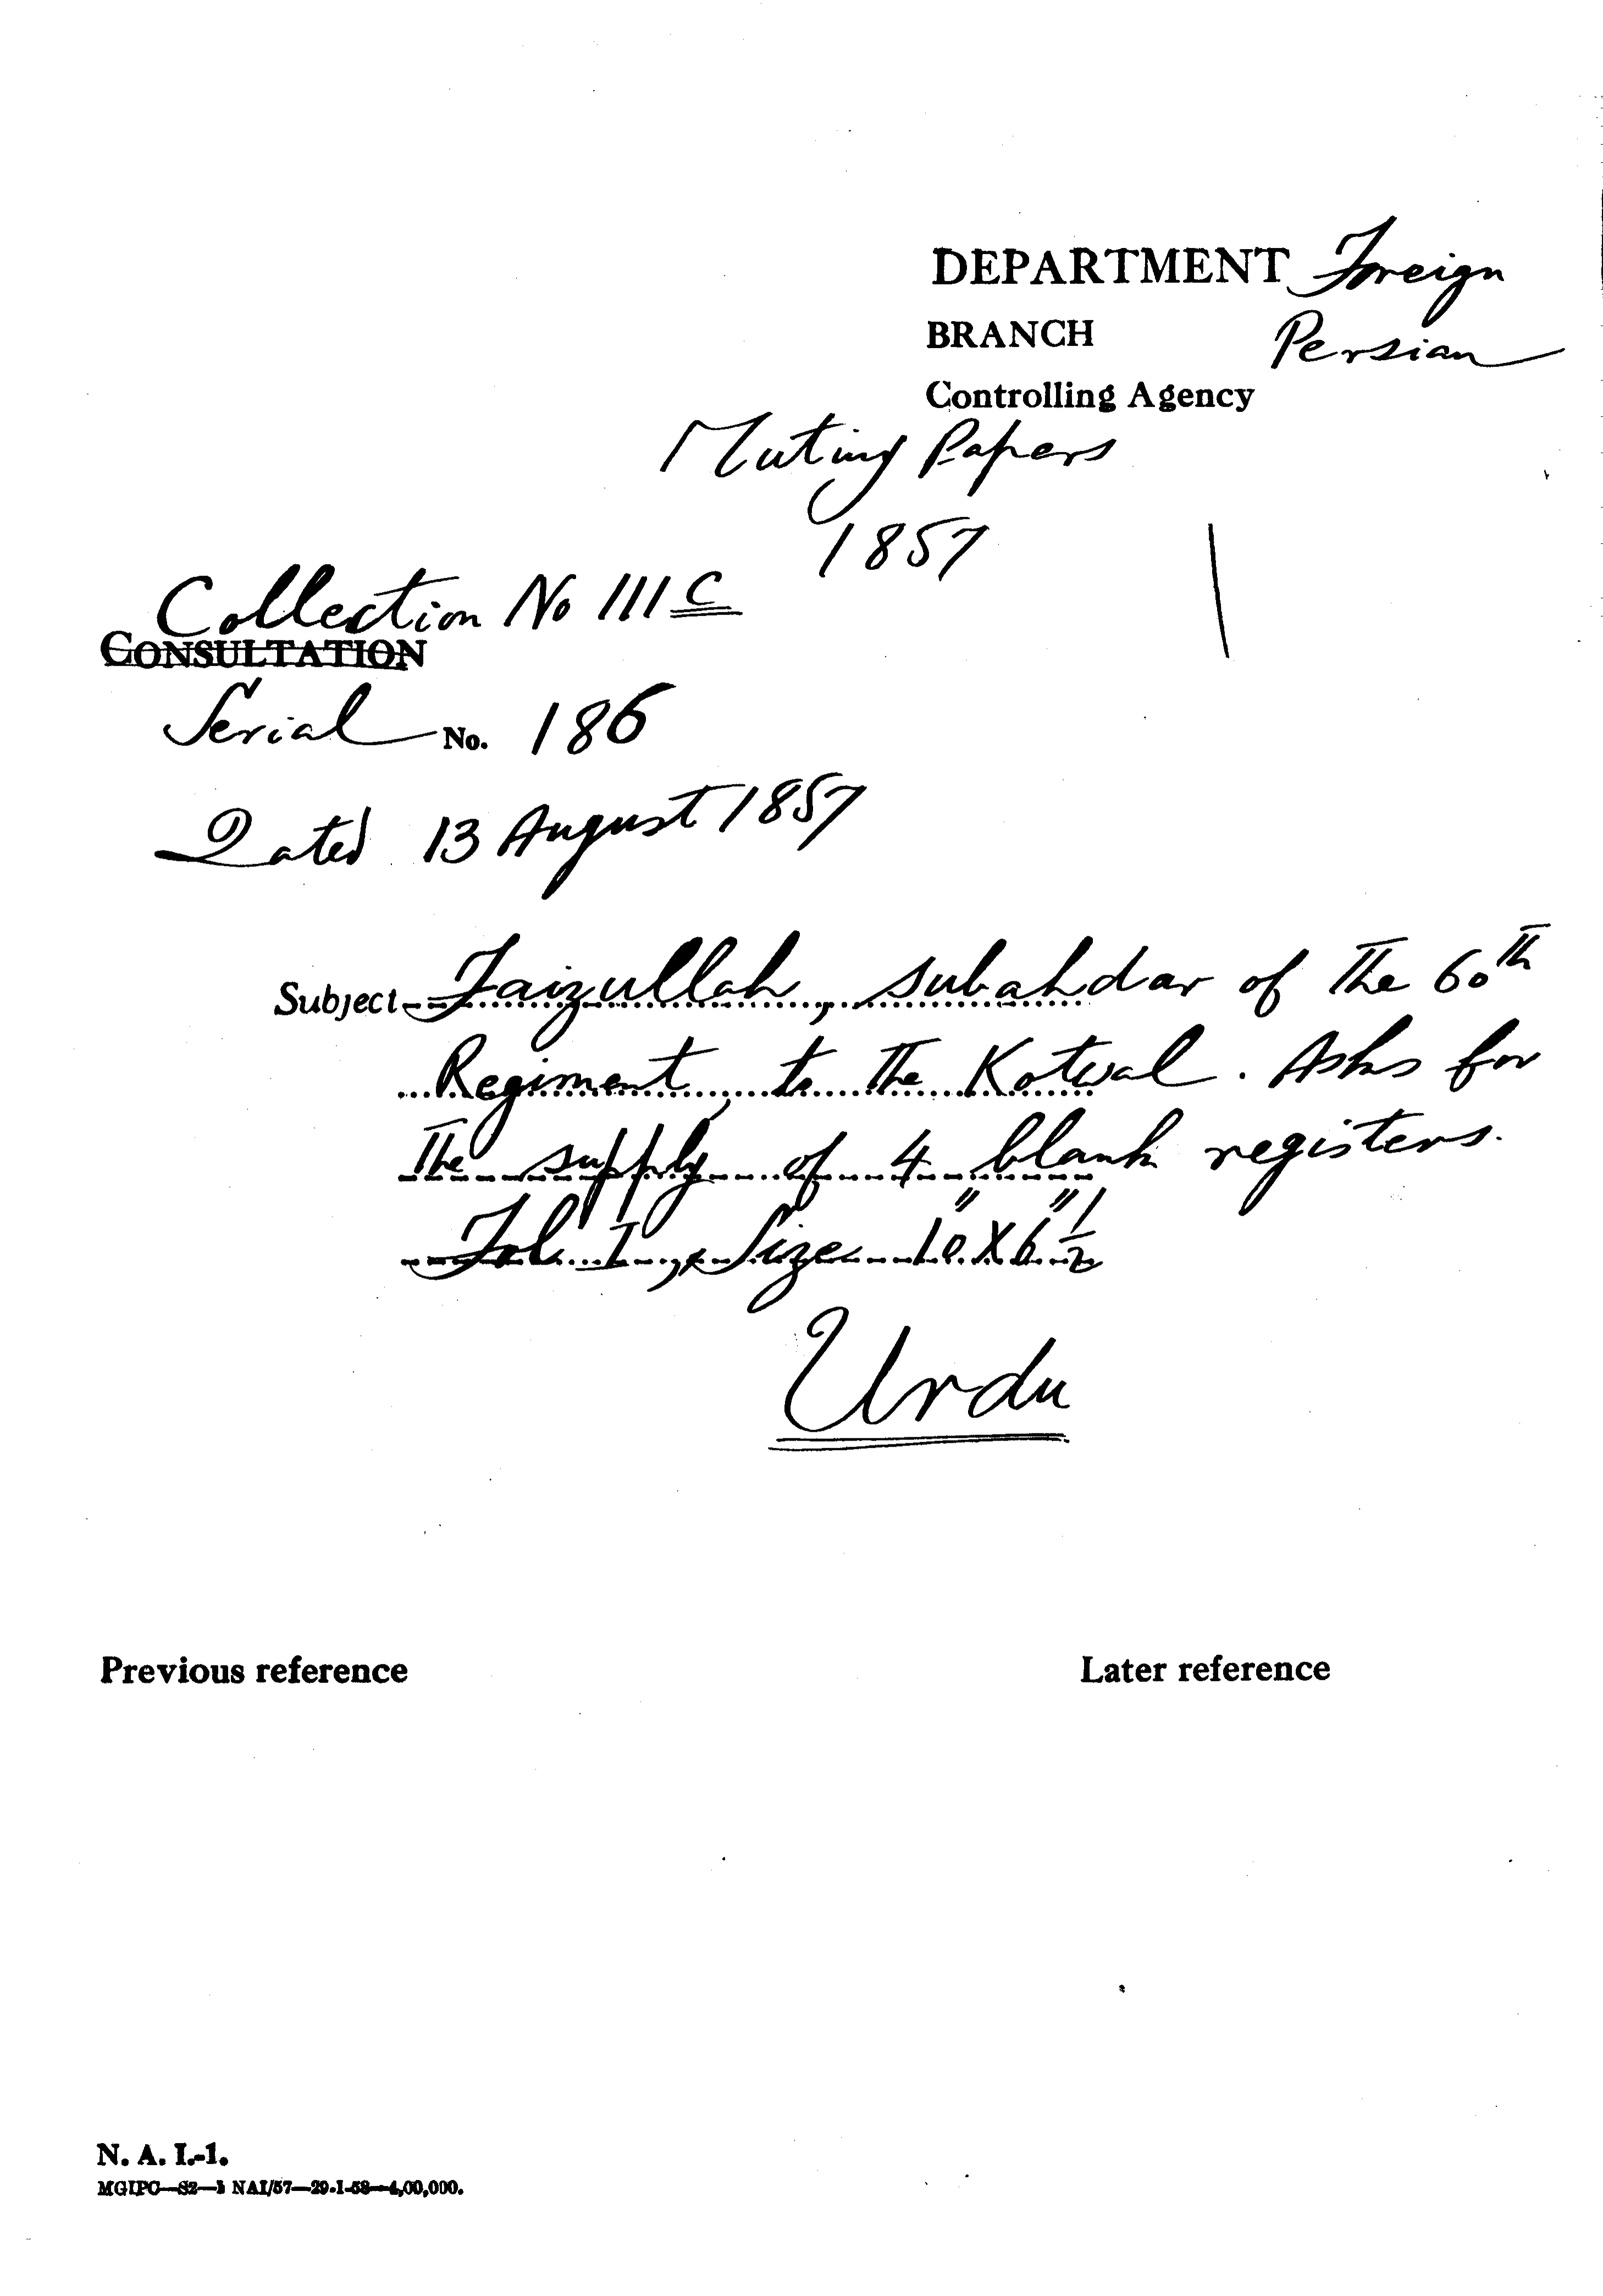 DEPARTMENT Foreign
BRANCH Persian
Controlling Agency
Mutiny Papers
1857
Collection No III C
CONSULTATION
Serial No. 186
Dated 13 August 1857
Subject- Faizullah, subahdar of the 60th
Regiment, to the Kotwal. Asks for
the supply of 4 blank registers.
Fol. I, Size 10" X 6" 1/2
Urdu
Previous reference Later reference
N. A. I.-1.
MGIPC—S2—1 NAI/57—29-1-58—4,00,000.